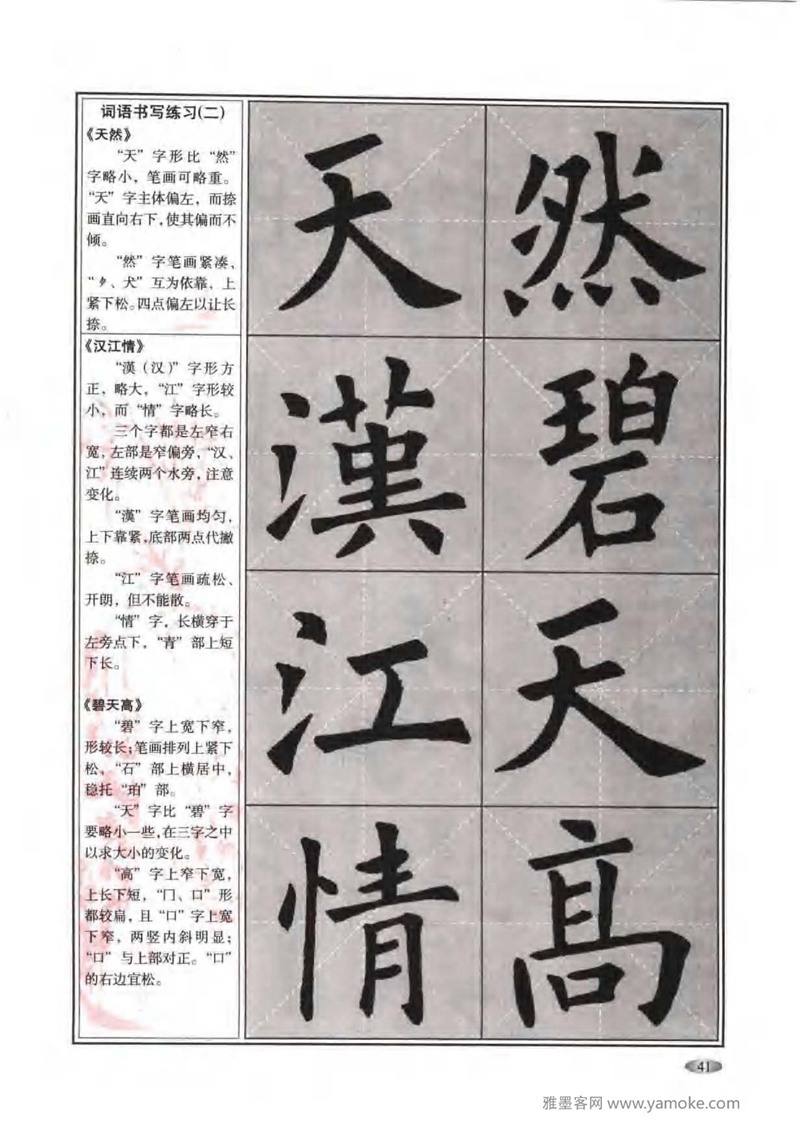 词语书写练习(二)
《天然》
“天”字形比“然”
字略小，笔画可略重。
“天”字主体偏左，而捺
画直向右下，使其偏而不
倾。
“然”字笔画紧凑、
“⺈、犬”互为依靠，上
紧下松。四点偏左以让长
捺。
《汉江情》
“漢（汉）”字形方
正，略大，“江”字形较
小，而“情”字略长。
三个字都是左窄右
宽，左部是窄偏旁，“汉、
江”连续两个水旁，注意
变化。
“漢”字笔画均匀，
上下靠紧，底部两点代撇
捺。
“江”字笔画疏松、
开朗，但不能散。
“情”字，长横穿于
左旁点下，“青”部上短
下长。
《碧天高》
“碧”字上宽下窄，
形较长；笔画排列上紧下
松、“石”部上横居中，
稳托“珀”部。
“天”字比“碧”字
要略小一些，在三字之中
以求大小的变化。
“高”字上窄下宽，
上长下短，“冂、口”形
都较扁，且“口”字上宽
下窄，两竖内斜明显；
“口”与上部对正。“口”
的右边宜松。
天 然
漢 碧
江 天
情 高
41
雅墨客网 www.yamoke.com